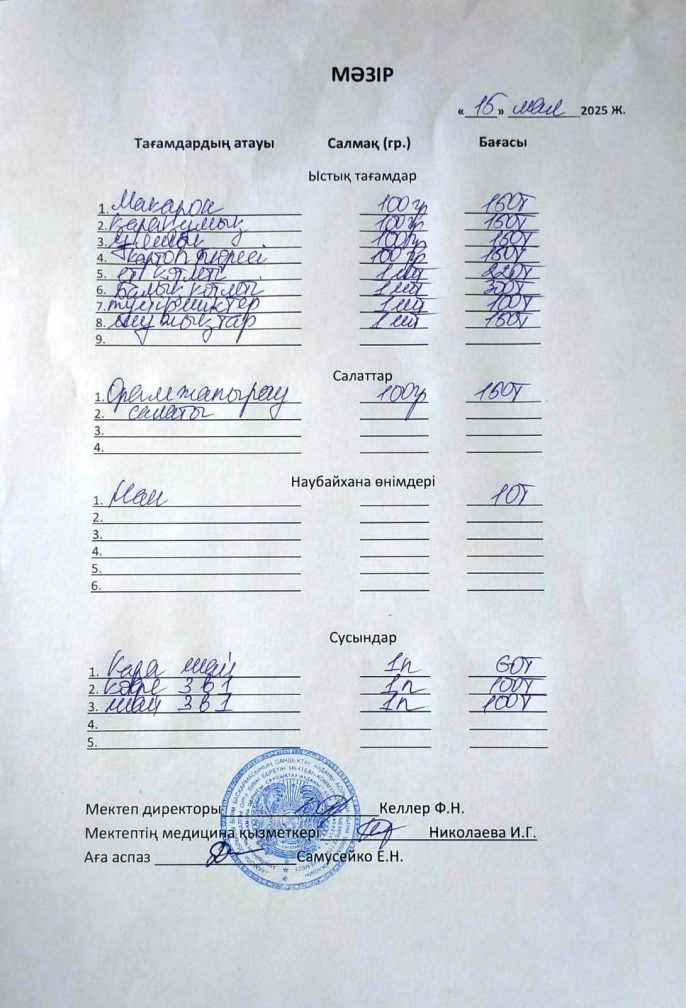 МӘЗІР
« 15 » май 2025 Ж.
Тағамдардың атауы Салмақ (гр.) Бағасы
Ыстық тағамдар
1. Макарон 100гр 150т
2. қарақұмық 100гр 150т
3. 100гр 150т
4. картоп пюресі 100гр 150т
5. ет котлеті 1шт 220т
6. балық котлеті 1шт 300т
7. 1шт 100т
8. 1шт 150т
9.
Салаттар
1. Орамжапырақ 100гр 150т
2. салаты
3.
4.
Наубайхана өнімдері
1. Нан 10т
2.
3.
4.
5.
6.
Сусындар
1. Қара шай 1п 60т
2. кофе 3 в 1 1п 100т
3. шай 3 в 1 1п 100т
4.
5.
Мектеп директоры Келлер Ф.Н.
Мектептің медицина қызметкері Николаева И.Г.
Аға аспаз Самусейко Е.Н.